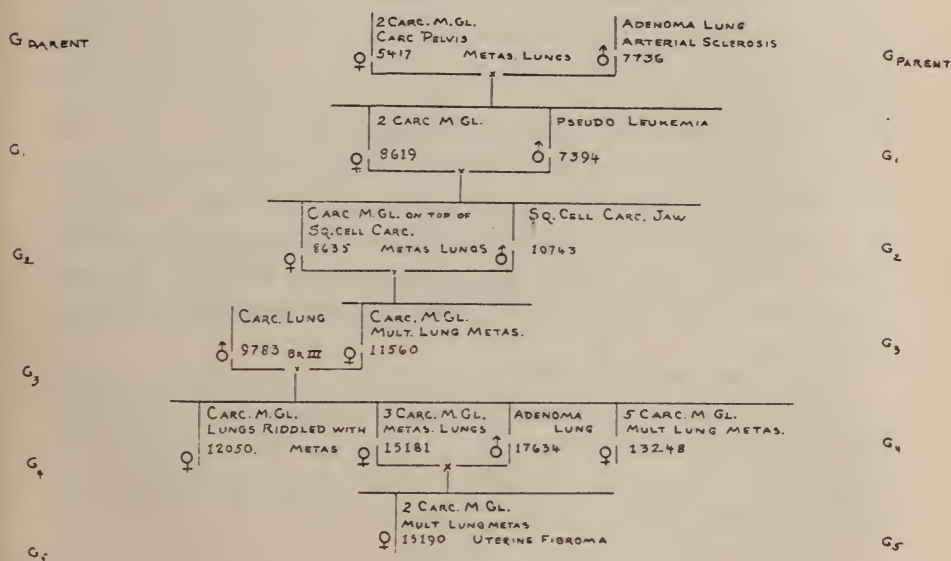 2 CARC. M. GL.
CARC PELVIS
♀ 5417 METAS. LUNGS
ADENOMA LUNG
ARTERIAL SCLEROSIS
♂ 7736
G PARENT
G PARENT
×
2 CARC M GL.
♀ 8619
PSEUDO LEUKEMIA
♂ 7394
G1
G1
×
CARC M. GL. ON TOP OF
SQ. CELL CARC.
♀ 8635 METAS LUNGS
SQ. CELL CARC. JAW
♂ 10743
G2
G2
×
CARC. LUNG
♂ 9783 BR III
CARC. M. GL.
MULT. LUNG METAS.
♀ 11560
G3
G3
×
CARC. M. GL.
LUNGS RIDDLED WITH
♀ 12050. METAS
3 CARC. M. GL.
METAS. LUNGS
♀ 15181
ADENOMA
LUNG
♂ 17634
5 CARC M GL.
MULT LUNG METAS.
♀ 13248
G4
G4
×
2 CARC. M. GL.
MULT LUNG METAS
♀ 15190 UTERINE FIBROMA
G5
G5